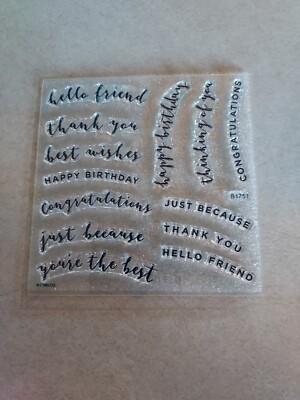 hello friend
thank you
best wishes
HAPPY BIRTHDAY
congratulations
just because
you're the best
happy birthday
thinking of you
CONGRATULATIONS
B1751
JUST BECAUSE
THANK YOU
HELLO FRIEND